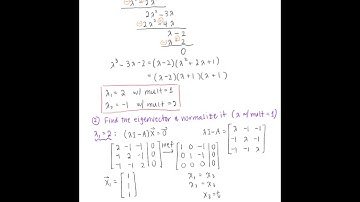 2λ² - 3λ
2λ² - 4λ
λ - 2
λ - 2
0
λ³ - 3λ - 2 = (λ-2)(λ² + 2λ + 1)
= (λ-2)(λ+1)(λ+1)
λ₁ = 2 w/ mult = 1
λ₂ = -1 w/ mult = 2
② Find the eigenvector & normalize it (λ w/ mult = 1)
λ₁ = 2: (λI-A)x⃗ = 0⃗ λI-A = [λ -1 -1
-1 λ -1
-1 -1 λ]
[2 -1 -1 | 0
-1 2 -1 | 0
-1 -1 2 | 0] rref → [1 0 -1 | 0
0 1 -1 | 0
0 0 0 | 0]
x⃗₁ = [1
1
1]
x₁ = x₃
x₂ = x₃
x₃ = t